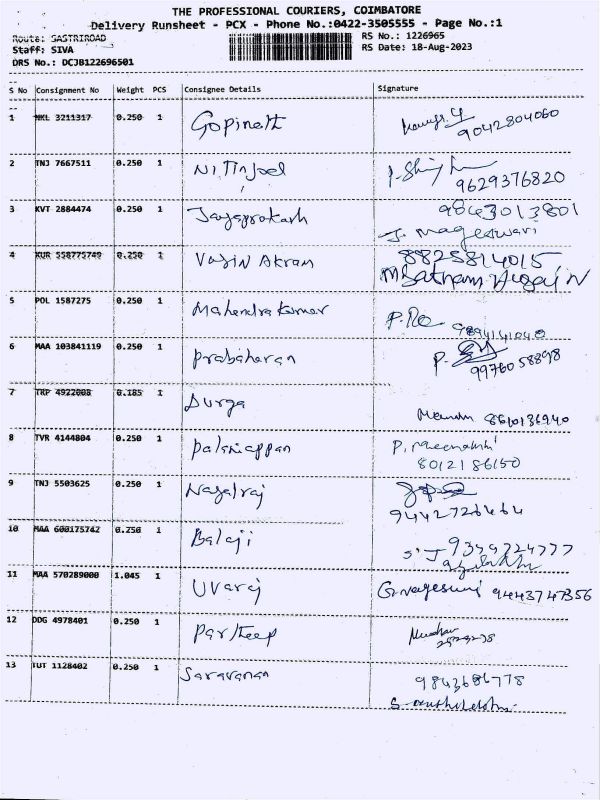 THE PROFESSIONAL COURIERS, COIMBATORE
Delivery Runsheet - PCX - Phone No.:0422-3505555 - Page No.:1
Route: SASTRIROAD
RS No.: 1226965
Staff: SIVA
RS Date: 18-Aug-2023
DRS No.: DCJB122696501
S No Consignment No Weight PCS Consignee Details Signature
1 NKL 3211317 0.250 1 Gopinath
9042804060
2 TNJ 7667511 0.250 1 Nitinjoel
9629376820
3 KVT 2884474 0.250 1 Jayaprakash 9843013801
J. Mageswari
4 KUR 558775749 0.250 1 Vasin Akram 8825814015
M Satham Husain
5 POL 1587275 0.250 1 Mahendra Kumar
6 MAA 103841119 0.250 1 Prabaharan P.
9976058898
7 TRP 4922008 0.185 1 Durga 8610136940
8 TVR 4144804 0.250 1 Palaniappan P. Meenakshi
8012186150
9 TNJ 5503625 0.250 1 Nagalraj
9442726464
10 MAA 600175742 0.250 1 Balaji
11 MAA 570289000 1.045 1 Uvaraj G. Nageswari 9443747356
12 DDG 4978401 0.250 1 Partheep
13 TUT 1128402 0.250 1 Saravanan 9843686778